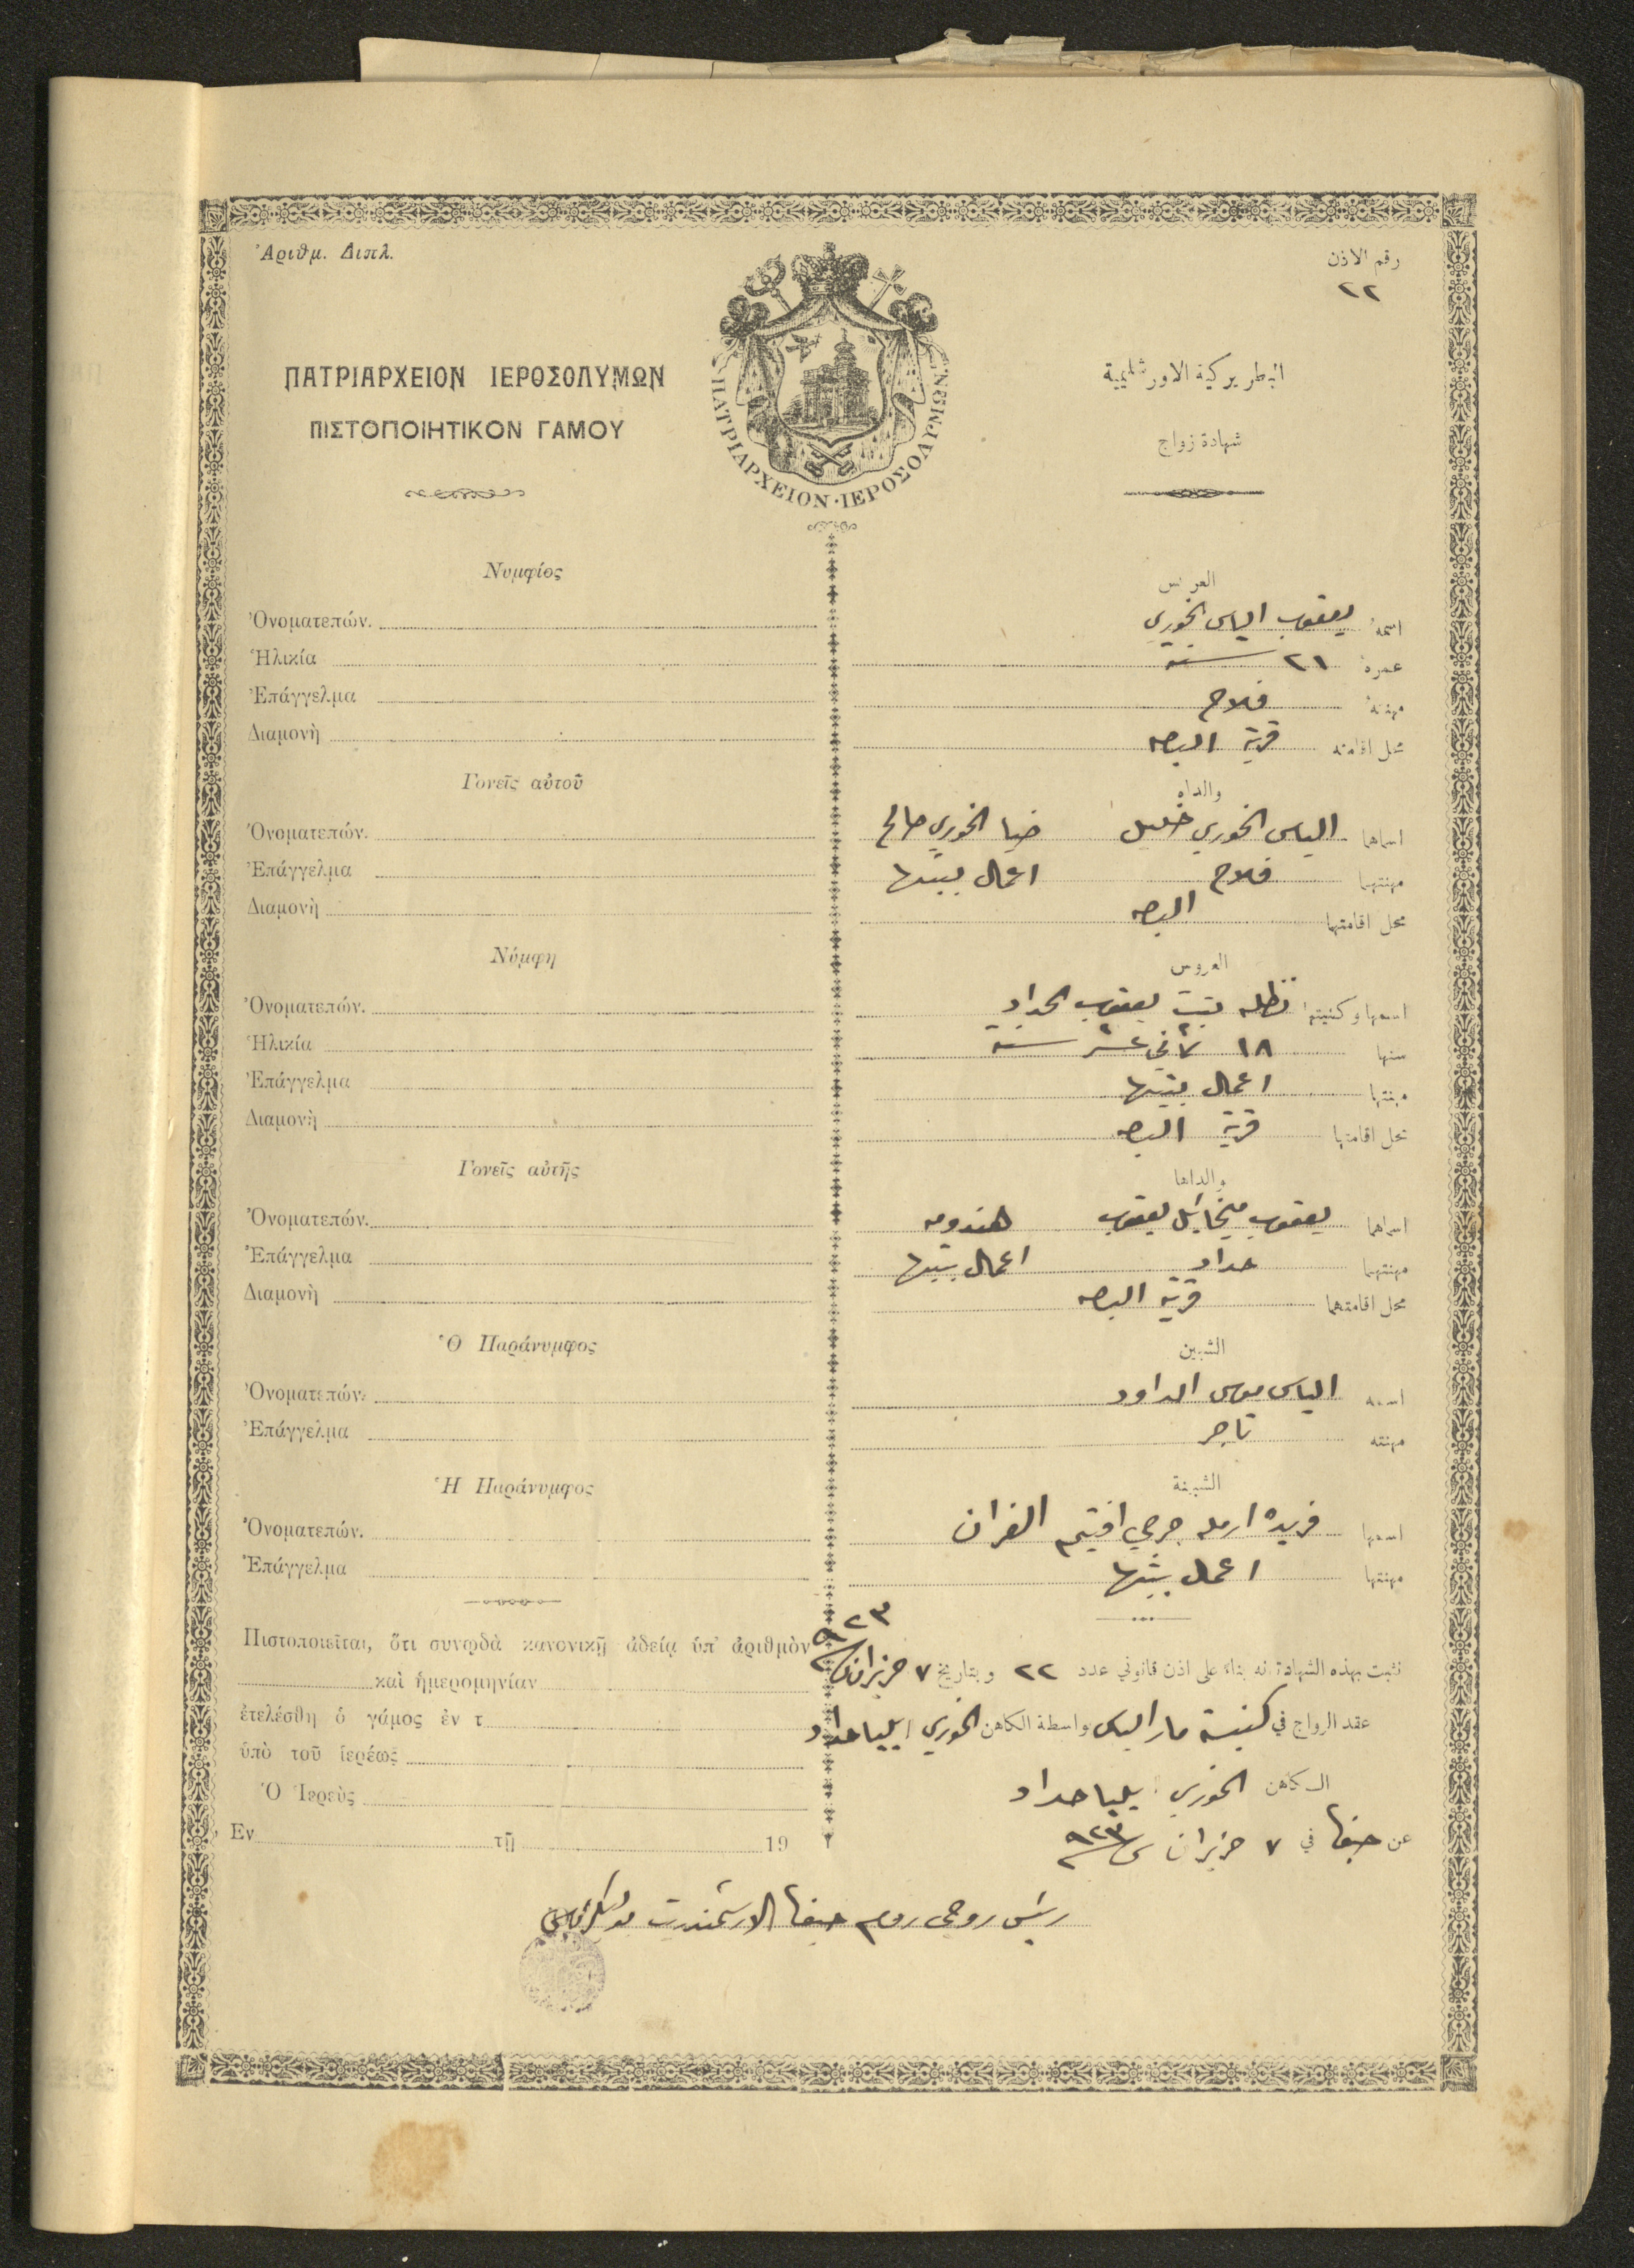 Ἀριθμ. Διπλ.
رقم الاذن
٢٢
ΠΑΤΡΙΑΡΧΕΙΟΝ ΙΕΡΟΣΟΛΥΜΩΝ
ΠΙΣΤΟΠΟΙΗΤΙΚΟΝ ΓΑΜΟΥ
ΠΑΤΡΙΑΡΧΕΙΟΝ·ΙΕΡΟΣΟΛΥΜΩΝ
البطريركية الاورشليمية
شهادة زواج
Νυμφίος
Ὀνοματεπών.
Ἡλικία
Ἐπάγγελμα
Διαμονὴ
Γονεῖς αὐτοῦ
Ὀνοματεπών.
Ἐπάγγελμα
Διαμονὴ
Νύμφη
Ὀνοματεπών.
Ἡλικία
Ἐπάγγελμα
Διαμονὴ
Γονεῖς αὐτῆς
Ὀνοματεπών.
Ἐπάγγελμα
Διαμονὴ
Ὁ Παράνυμφος
Ὀνοματεπών.
Ἐπάγγελμα
Ἡ Παράνυμφος
Ὀνοματεπών.
Ἐπάγγελμα
Πιστοποιεῖται, ὅτι συνῳδὰ κανονικῇ ἀδείᾳ ὑπ' ἀριθμὸν
καὶ ἡμερομηνίαν
ἐτελέσθη ὁ γάμος ἐν τ
ὑπὸ τοῦ ἱερέως
Ὁ Ἱερεὺς
Ἐν τῇ 19
العريس
اسمه يعقوب الياس الخوري
عمره ٢١ سنة
مهنته فلاح
محل اقامته قرية البصه
والداه
اسماهما الياس الخوري خليل ضيا الخوري صالح
مهنتهما فلاح اعمال بيتها
محل اقامتهما البصه
العروس
اسمها وكنيتها نظله بنت يعقوب الحداد
سنها ١٨ ثماني عشر سنة
مهنتها اعمال بيتها
محل اقامتها قرية البصه
والداها
اسماهما يعقوب ميخائيل يعقوب هندومه
مهنتهما حداد اعمال بيتها
محل اقامتهما قرية البصه
الشبين
اسمه الياس موسى الداود
مهنته تاجر
الشبينة
اسمها فريده ارمله جرجي افتيم الفران
مهنتها اعمال بيتها
نثبت بهذه الشهادة انه بناء على اذن قانوني عدد ٢٢ وبتاريخ ٧ حزيران ٩٢٣
عقد الزواج في كنيسة مار الياس بواسطة الكاهن الخوري ايليا حداد
الكاهن الخوري ايليا حداد
عن حيفا في ٧ حزيران ٩٢٣
رئيس روحي روم حيفا الارشمندريت